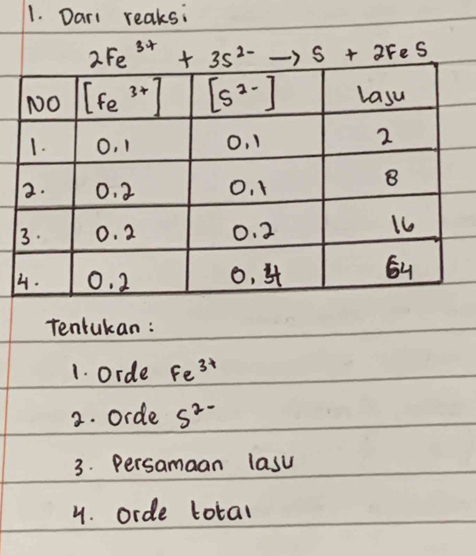 1. Dari reaksi
2Fe³⁺ + 3S²⁻ → S + 2FeS
NO [Fe³⁺] [S²⁻] Laju
1. 0,1 0,1 2
2. 0,2 0,1 8
3. 0,2 0,2 16
4. 0,2 0,4 64
Tentukan :
1. Orde Fe³⁺
2. Orde S²⁻
3. Persamaan laju
4. Orde total